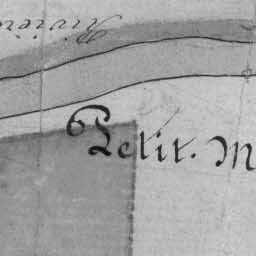 Rivière
Petit. M